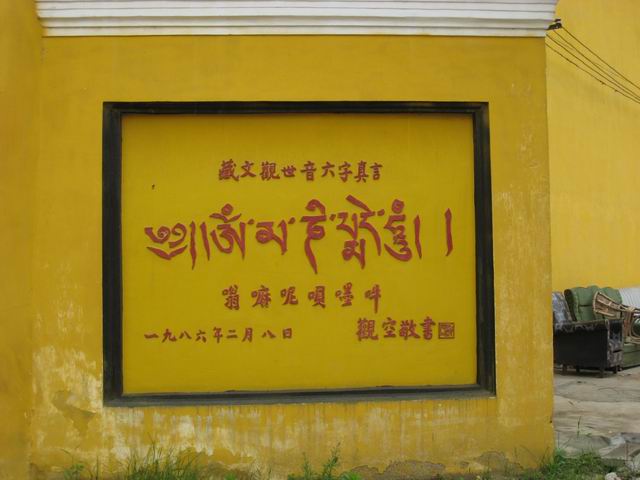 藏文觀世音六字真言
༄༅།།ཨོཾ་མ་ཎི་པདྨེ་ཧཱུྃ། །
嗡嘛呢唄嚜吽
一九八六年二月八日 觀空敬書